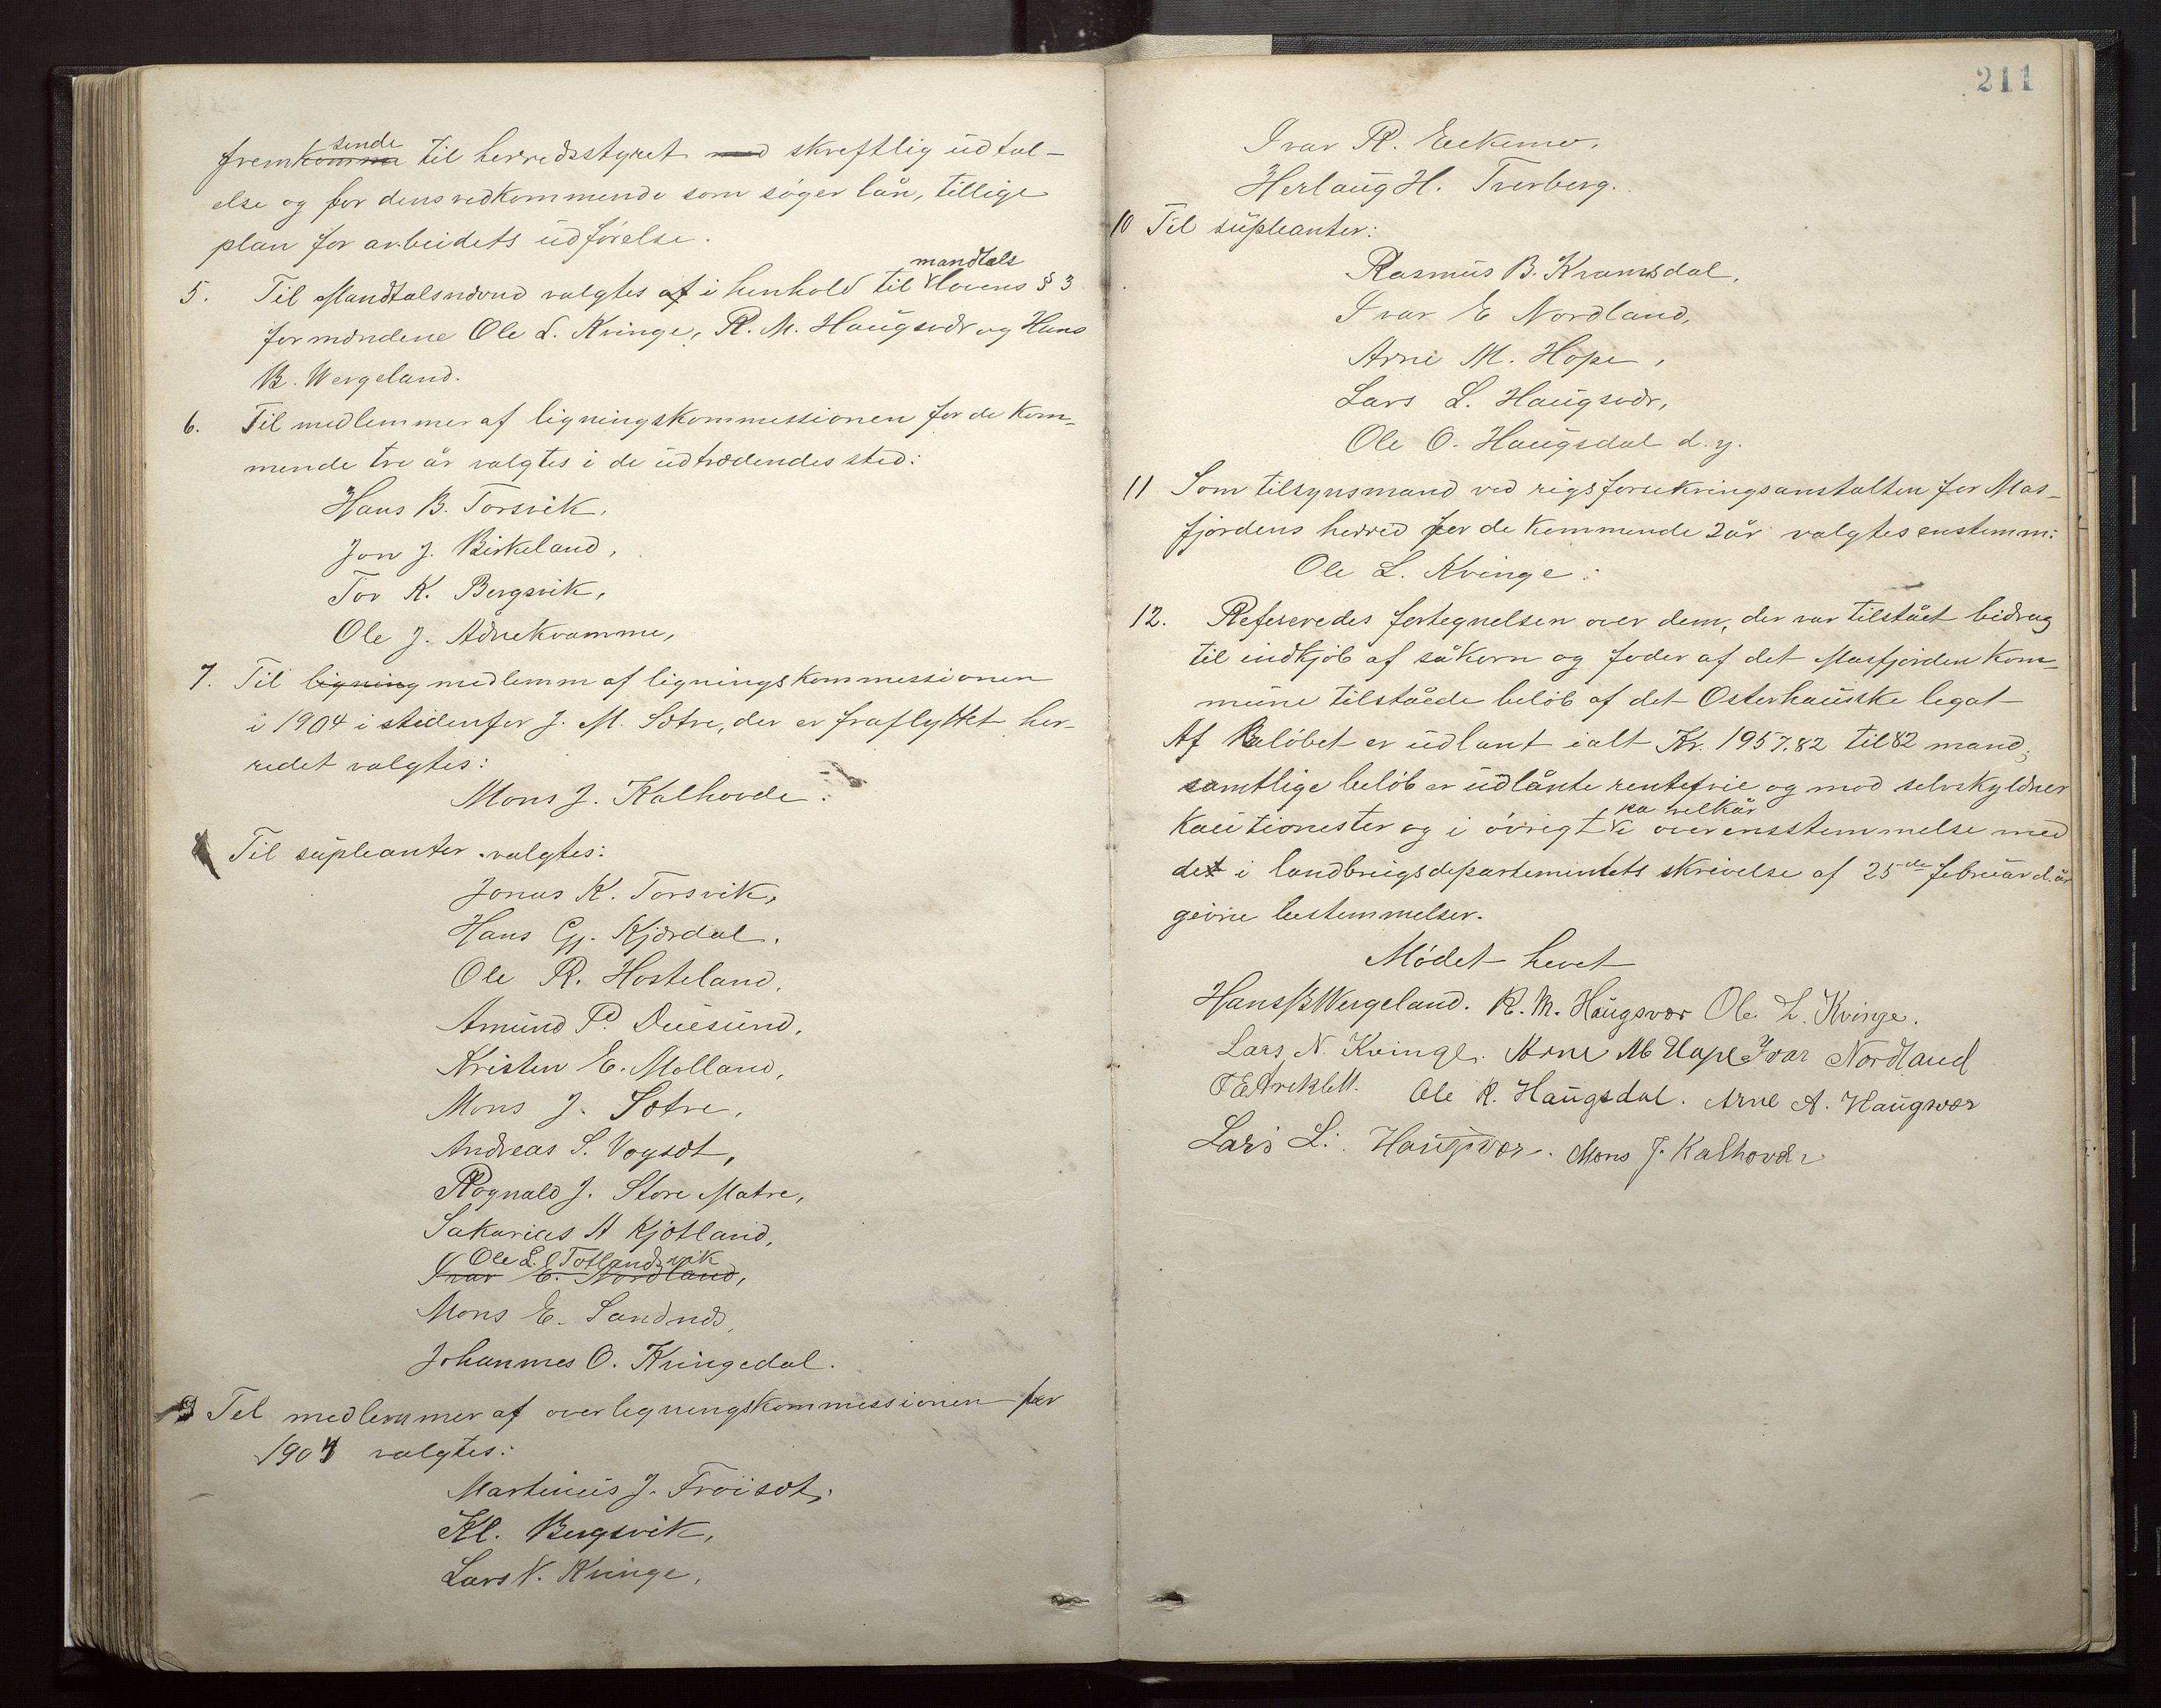 fremsende til herredsstyret skreftlig udtal-
else og for densvedkommende som søger lån, tillige
plan for arbeidets udførelse.
5. Til Mandtalsnævnd valgtes i henhold til mandtalslovens § 3
formændene Ole L. Kvinge, R. M. Haugsvær og Hans
B. Wergeland.
6. Til medlemmer af ligningskommessionen for de kom-
mende tre år valgtes i de udtrædendes sted:
Hans B. Torsvik,
Jon J. Birkeland,
Tor K. Bergsvik,
Ole J. Adnekvamme,
7. Til ligning medlemm af ligningskommessionen
i 1904 i stedenfor J. M. Sætre, der er fraflyttet her-
redet valgtes:
Mons J. Kalhovde.
8 Til supleanter valgtes:
Jonas K. Torsvik,
Hans Gj. Kjærdal.
Ole R. Hosteland,
Amund P. Duesund,
Kristen E. Molland,
Mons J. Sætre,
Andreas S. Vogsæt,
Rognald J. Store Matre,
Sakarias A Kjøtland,
Ole L. Totlandsvik
Ivar E. Nordland,
Mons E. Sandnæs,
Johannes O. Kringedal.
9 Tel medlemmer af overlegningskommessionen for
1904 valgtes:
Martinius J. Frøisæt,
Kl. Bergsvik,
Lars N. Kvinge,
211
Ivar R. Eekemo.
Herlaug H. Tverberg.
10 Til supleanter:
Rasmus B. Kvamsdal,
Ivar E Nordland,
Arne M. Hope,
Lars L. Haugsvær,
Ole O. Haugsdal d.y.
11 Som tilsynsmand ved rigsforsekringsanstalten for Mas-
fjordens herred for de kommende 2 år valgtes enstemm:
Ole L. Kvinge.
12. Refereredes fortegnelsen over dem, der var tilstået bidrag
til indkjøb af såkorn og foder af det Masfjorden kom-
mune tilståede beløb af det Osterhauske legat
Af Beløbet er udlant ialt Kr. 1957.82 til 82 mand;
samtlige beløb er udlånte rentefrie og mod selvskyldner
kautionester og i øvrigt pa velkår i overensstemmelse med
det i landbrugsdepartementets skrivelse af 25de februar d. år
gevne bestemmelser.
Mødet hevet
Hans B Wergeland. R. M. Haugsvær Ole L. Kvinge.
Lars N. Kvinge. Arne M Hope Ivar Nordland
Ole R. Haugsdal. Arne A. Haugsvær
Lars L. Haugsvær. Mons J. Kalhovde